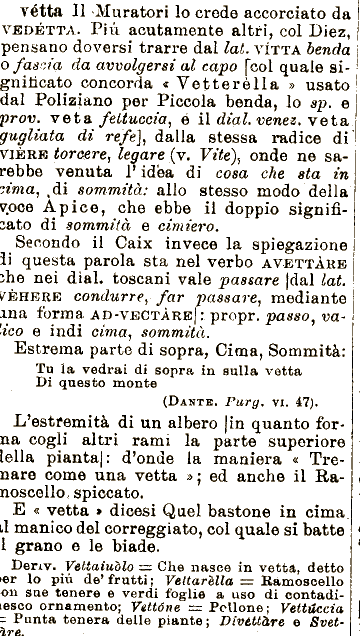 vétta Il Muratori lo crede accorciato da
VEDÉTTA. Più acutamente altri, col Diez,
pensano doversi trarre dal lat. VÍTTA benda
o fascia da avvolgersi al capo [col quale si-
gnificato concorda « Vetterèlla » usato
dal Poliziano per Piccola benda, lo sp. e
prov. veta fettuccia, e il dial. venez. veta
gugliata di refe], dalla stessa radice di
VIÈRE torcere, legare (v. Vite), onde ne sa-
rebbe venuta l'idèa di cosa che sta in
cima, di sommità: allo stesso modo della
voce Àpice, che ebbe il doppio signifi-
cato di sommità e cimiero.
Secondo il Caix invece la spiegazione
di questa parola sta nel verbo AVETTÀRE
che nei dial. toscani vale passare |dal lat.
VÈHERE condurre, far passare, mediante
una forma AD-VECTÀRE|: propr. passo, va-
lico e indi cima, sommità.
Estrema parte di sopra, Cima, Sommità:
Tu la vedrai di sopra in sulla vetta
Di questo monte
(DANTE. Purg. VI. 47).
L'estremità di un albero |in quanto for-
ma cogli altri rami la parte superiore
della pianta|: d'onde la maniera « Tre-
mare come una vetta »; ed anche il Ra-
moscello spiccato.
E « vetta » dicesi Quel bastone in cima
al manico del correggiato, col quale si batte
il grano e le biade.
Deriv. Vettaiuòlo = Che nasce in vetta, detto
per lo più de' frutti; Vettarèlla = Ramoscello
con sue tenere e verdi foglie a uso di contadi-
nesco ornamento; Vettóne = Pollone; Vettúccia
= Punta tenera delle piante; Divettàre e Svet-
tàre.